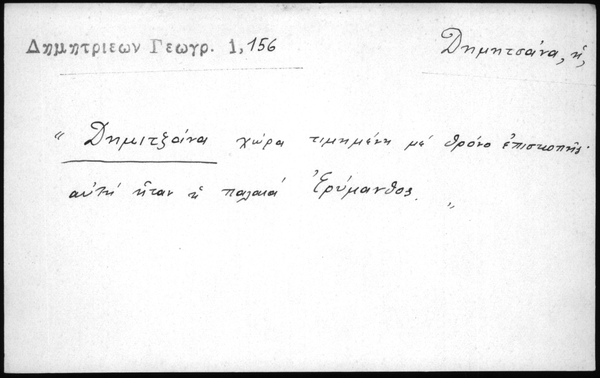 Δημητριεων Γεωγρ. 1,156
Δημητσάνα, ἡ,
“ Δημιτζάνα χώρα τιμημένη μέ θρόνο ἐπισκοπῆς·
αὐτή ἦταν ἡ παλαιά Ἐρύμανθος. „